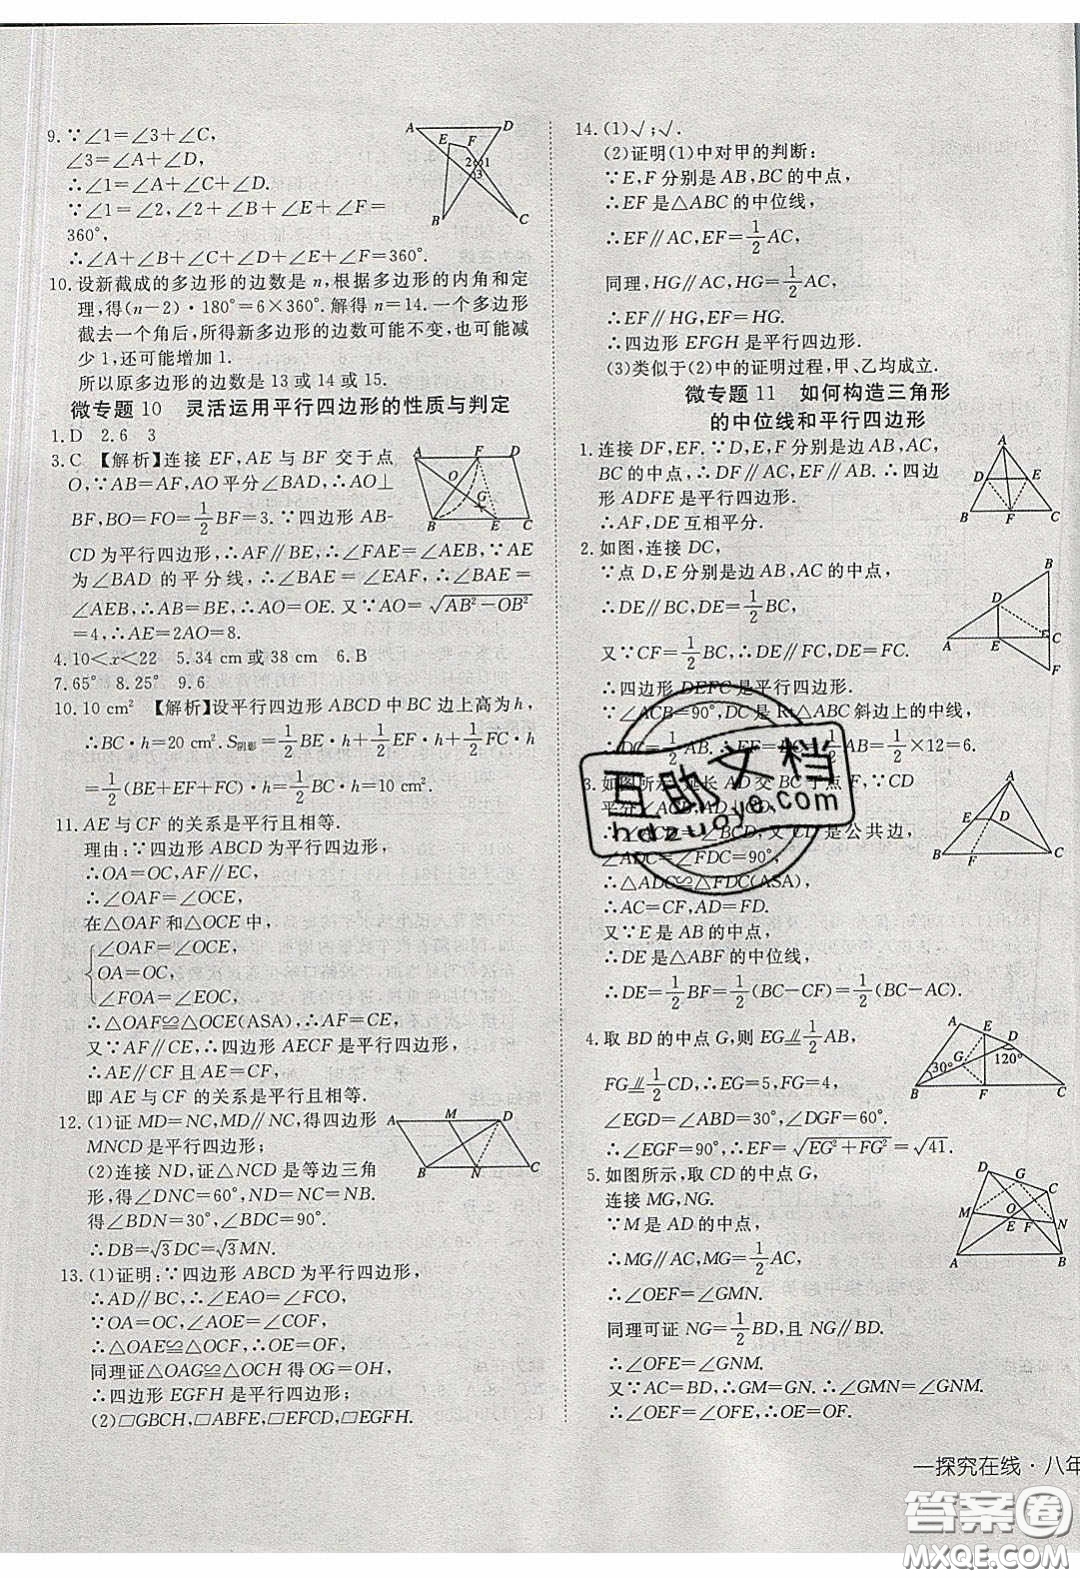 9. ∵∠1=∠3+∠C,
∠3=∠A+∠D,
∴∠1=∠A+∠C+∠D.
∵∠1=∠2,∠2+∠B+∠E+∠F=
360°,
∴∠A+∠B+∠C+∠D+∠E+∠F=360°.
10. 设新截成的多边形的边数是 n,根据多边形的内角和定
理,得(n-2)·180°=6×360°. 解得 n=14. 一个多边形
截去一个角后,所得新多边形的边数可能不变,也可能减
少 1,还可能增加 1.
所以原多边形的边数是 13 或 14 或 15.
微专题 10 灵活运用平行四边形的性质与判定
1. D 2. 6 3
3. C 【解析】连接 EF,AE 与 BF 交于点
O,∵AB=AF,AO平分∠BAD,∴AO⊥
BF,BO=FO=1/2BF=3. ∵四边形 AB-
CD 为平行四边形,∴AF∥BE,∴∠FAE=∠AEB,∵AE
为∠BAD 的平分线,∴∠BAE=∠EAF,∴∠BAE=
∠AEB,∴AB=BE,∴AO=OE. 又∵AO=√(AB²-OB²)
=4,∴AE=2AO=8.
4. 10<x<22 5. 34 cm 或 38 cm 6. B
7. 65° 8. 25° 9. 6
10. 10 cm² 【解析】设平行四边形 ABCD 中 BC 边上高为 h,
∴BC·h=20 cm². S阴影=1/2BE·h+1/2EF·h+1/2FC·h
=1/2(BE+EF+FC)·h=1/2BC·h=10 cm².
11. AE 与 CF 的关系是平行且相等.
理由:∵四边形 ABCD 为平行四边形,
∴OA=OC,AF∥EC,
∴∠OAF=∠OCE,
在△OAF 和△OCE 中,
∠OAF=∠OCE,
OA=OC,
∠FOA=∠EOC,
∴△OAF≌△OCE(ASA),∴AF=CE,
又∵AF∥CE,∴四边形 AECF 是平行四边形,
∴AE∥CF 且 AE=CF,
即 AE 与 CF 的关系是平行且相等.
12. (1)证 MD=NC,MD∥NC,得四边形
MNCD 是平行四边形;
(2)连接 ND,证△NCD 是等边三角
形,得∠DNC=60°,ND=NC=NB.
得∠BDN=30°,∠BDC=90°.
∴DB=√3DC=√3MN.
13. (1)证明:∵四边形 ABCD 为平行四边形,
∴AD∥BC,∴∠EAO=∠FCO,
∵OA=OC,∠AOE=∠COF,
∴△OAE≌△OCF,∴OE=OF.
同理证△OAG≌△OCH 得 OG=OH,
∴四边形 EGFH 是平行四边形;
(2)□GBCH,□ABFE,□EFCD,□EGFH.
14. (1)√;√.
(2)证明(1)中对甲的判断:
∵E,F 分别是 AB,BC 的中点,
∴EF 是△ABC 的中位线,
∴EF∥AC,EF=1/2AC,
同理,HG∥AC,HG=1/2AC,
∴EF∥HG,EF=HG.
∴四边形 EFGH 是平行四边形.
(3)类似于(2)中的证明过程,甲、乙均成立.
微专题 11 如何构造三角形
的中位线和平行四边形
1. 连接 DF,EF. ∵D,E,F 分别是边 AB,AC,
BC 的中点,∴DF∥AC,EF∥AB,∴四边
形 ADFE 是平行四边形.
∴AF,DE 互相平分.
2. 如图,连接 DC,
∵点 D,E 分别是边 AB,AC 的中点,
∴DE∥BC,DE=1/2BC,
又∵CF=1/2BC,∴DE∥CF,DE=CF,
∴四边形 DEFC 是平行四边形.
∵∠ACB=90°,DC 是 Rt△ABC 斜边上的中线,
∴DC=1/2AB. ∴EF=DC=1/2AB=1/2×12=6.
3. 如图所示,延长 AD 交 BC 于点 F,∵CD
平分∠ACB,AD⊥CD,
∴∠ACD=∠BCD,又 CD 是公共边,
∠ADC=∠FDC=90°,
∴△ADC≌△FDC(ASA),
∴AC=CF,AD=FD.
又∵E 是 AB 的中点,
∴DE 是△ABF 的中位线,
∴DE=1/2BF=1/2(BC-CF)=1/2(BC-AC).
4. 取 BD 的中点 G,则 EG⫽1/2AB,
FG⫽1/2CD,
∠EGD=∠ABD=30°,∠DGF=60°.
∴∠EGF=90°,∴EF=√(EG²+FG²)=√41.
5. 如图所示,取 CD 的中点 G,
连接 MG,NG.
∵M 是 AD 的中点,
∴MG∥AC,MG=1/2AC,
∴∠OEF=∠GMN.
同理可证 NG=1/2BD,且 NG∥BD.
∴∠OFE=∠GNM.
又∵AC=BD,∴GM=GN. ∴∠GMN=∠GNM.
∴∠OEF=∠OFE,∴OE=OF.
互助文档
hdzuoye.com
—探究在线·八年
答案圈
MXQE.COM